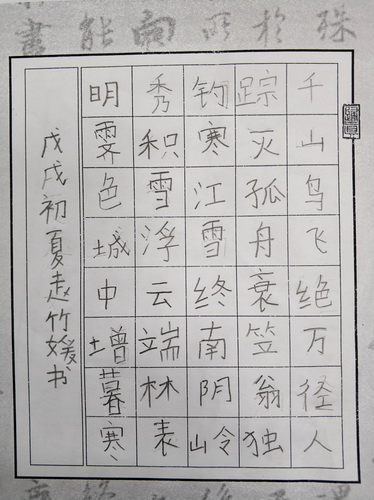 千山鸟飞绝万径人
踪灭孤舟衰笠翁独
钓寒江雪终南阴岭
秀积雪浮云端林表
明霁色城中增暮寒
戊戌初夏赵竹媛书